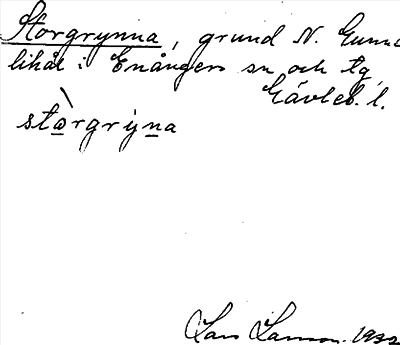 Storgrynna, grund N. Gunno
lihål i Enångers sn och tg
Gävleb. l.
stòrgryna
Lars Larsson. 1932